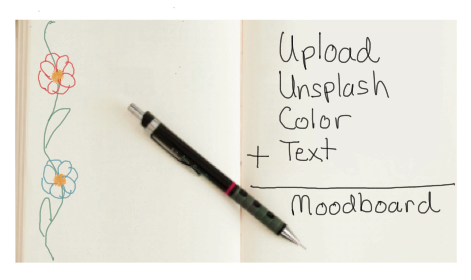 Upload
Unsplash
Color
+ Text
Moodboard